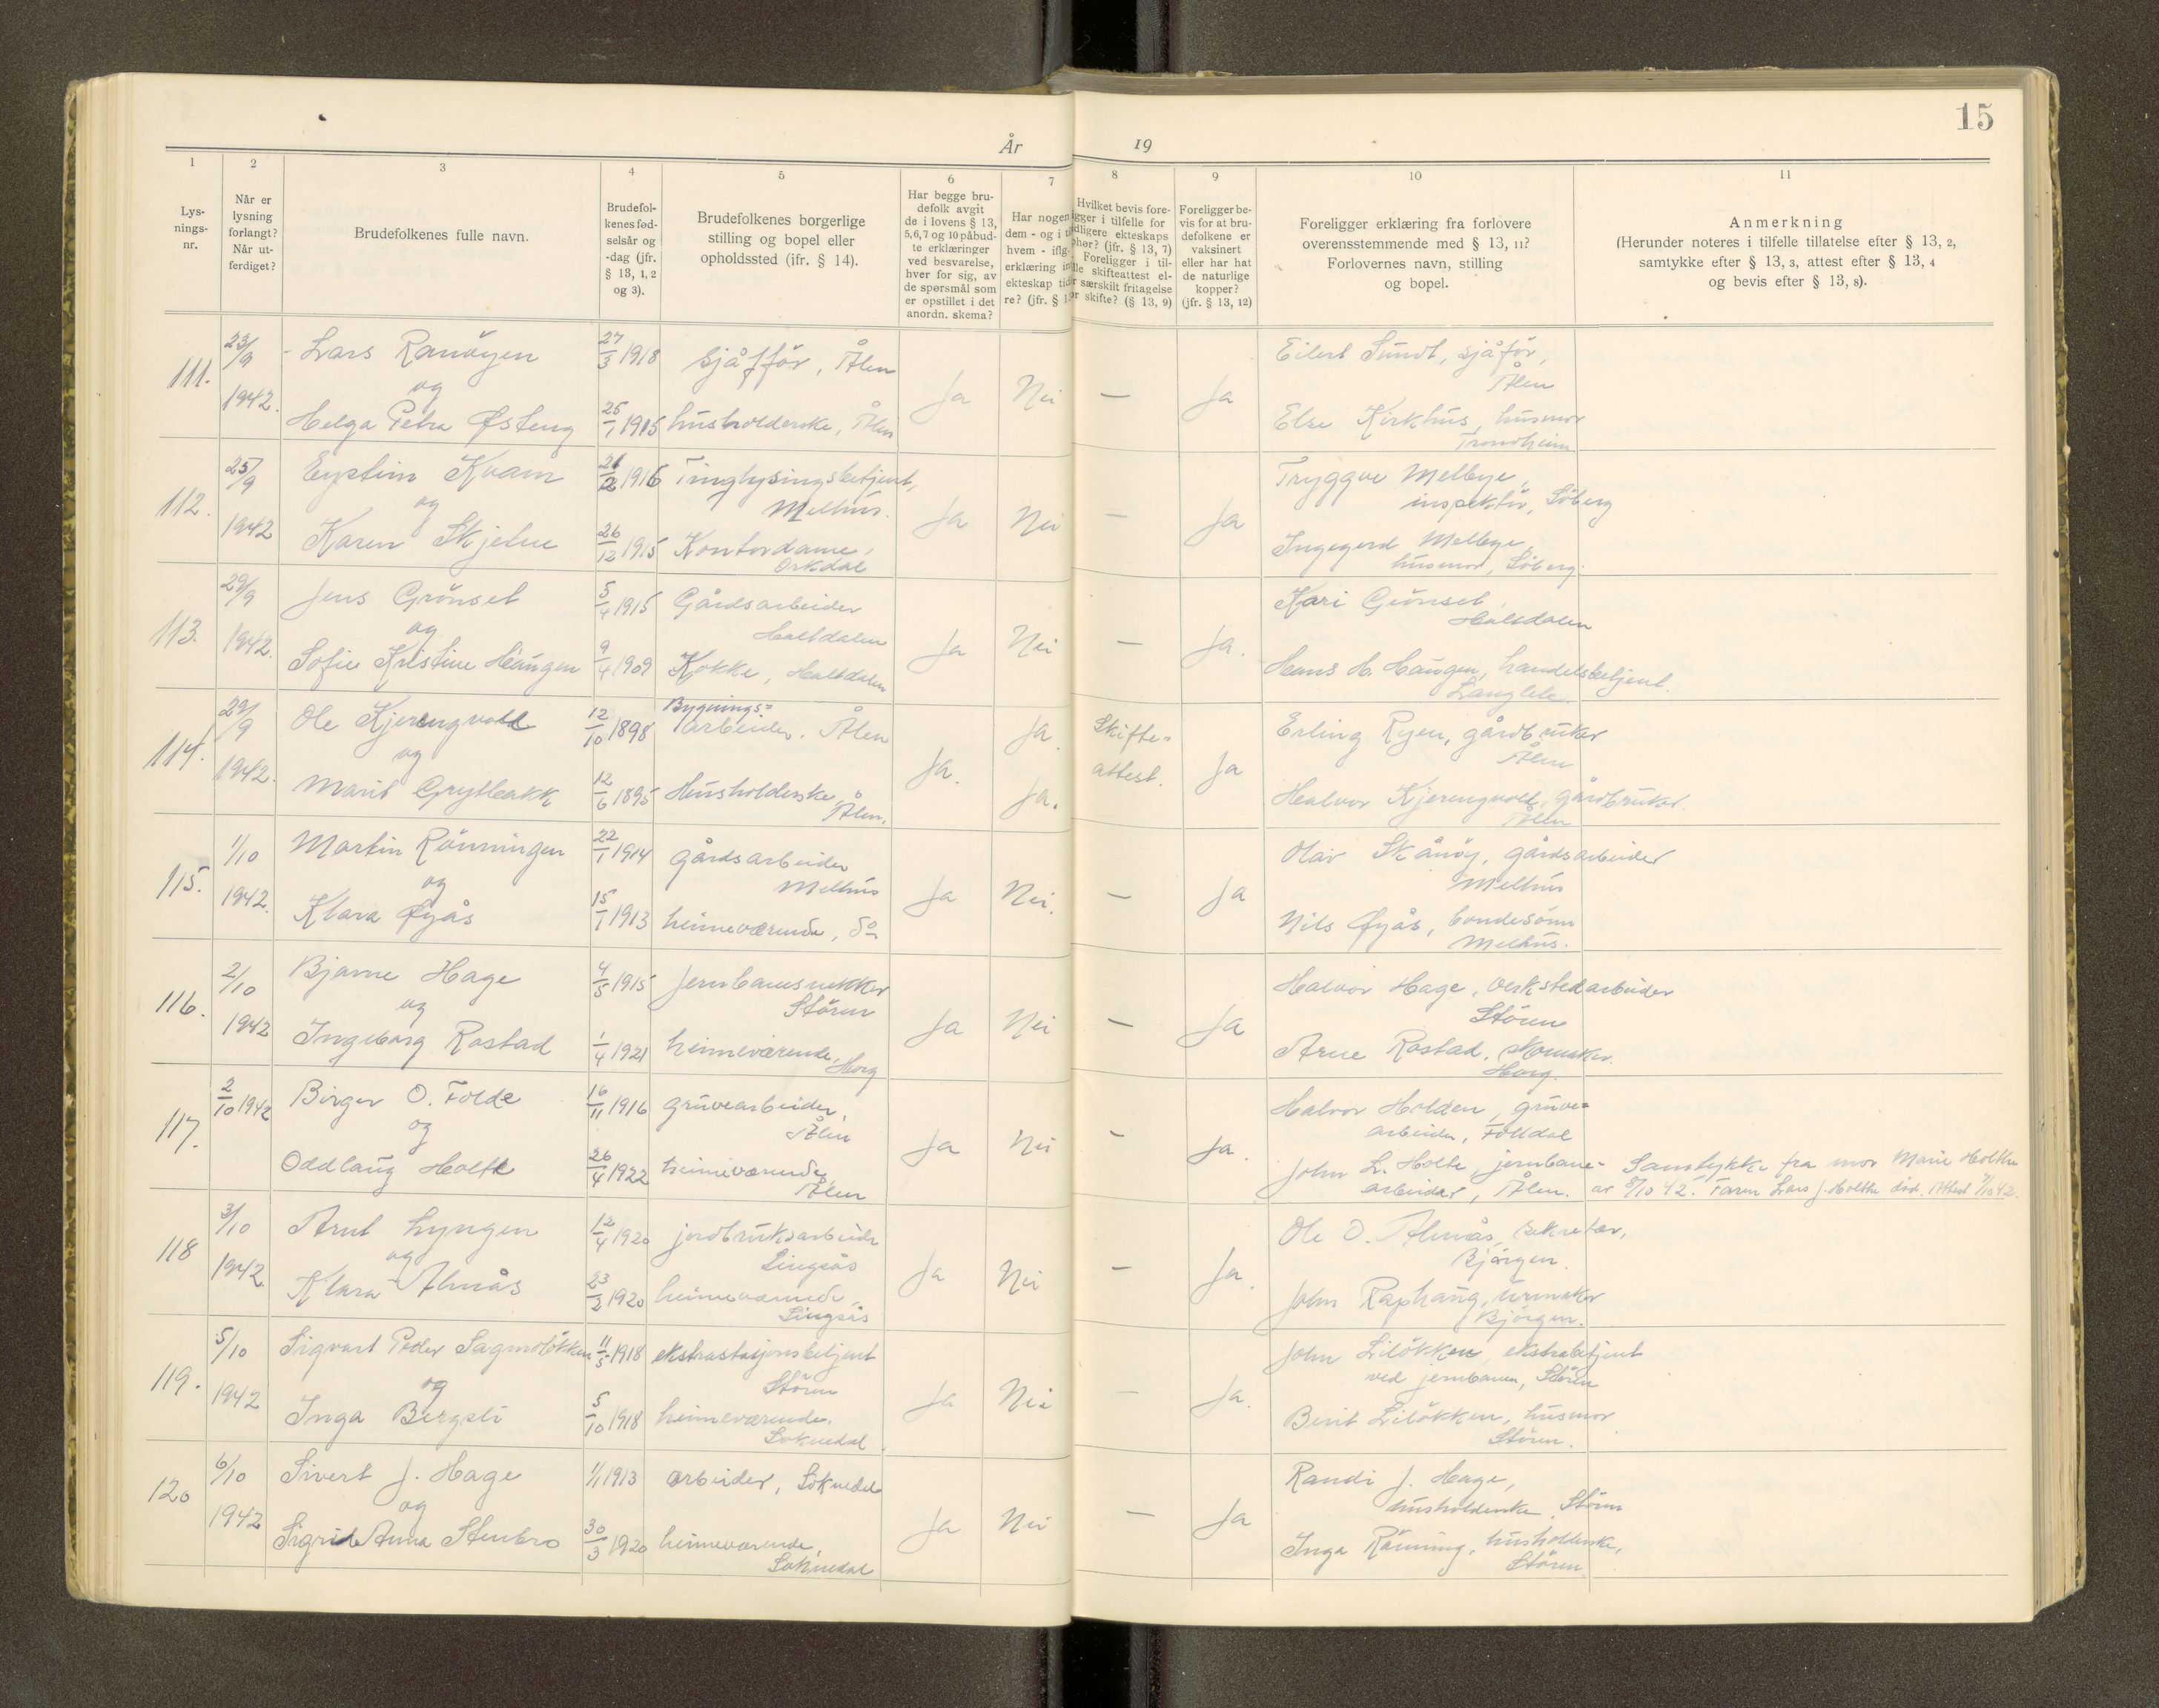 15
År 19
1 2 3 4 5 6 7 8 9 10 11
Lys-
nings-
nr.
Når er
lysning
forlangt?
Når ut-
ferdiget?
Brudefolkenes fulle navn.
Brudefol-
kenes fød-
selsår og
-dag (jfr.
§ 13, 1, 2
og 3).
Brudefolkenes borgerlige
stilling og bopel eller
opholdssted (ifr. § 14).
Har begge bru-
defolk avgit
de i lovens § 13,
5, 6, 7 og 10 påbud-
te erklæringer
ved besvarelse,
hver for sig, av
de spørsmål som
er opstillet i det
anordn. skema?
Har nogen
dem - og i ti
hvem - iflg.
erklæring in
ekteskap tid
re? (jfr. § 1
Hvilket bevis fore-
ligger i tilfelle for
dligere ekteskaps
phør? (jfr. § 13, 7)
Foreligger i til-
lle skifteattest el-
r særskilt fritagelse
or skifte? (§ 13, 9)
Foreligger be-
vis for at bru-
defolkene er
vaksinert
eller har hat
de naturlige
kopper?
(jfr. § 13, 12)
Foreligger erklæring fra forlovere
overensstemmende med § 13, 11?
Forlovernes navn, stilling
og bopel.
Anmerkning
(Herunder noteres i tilfelle tillatelse efter § 13, 2,
samtykke efter § 13, 3, attest efter § 13, 4
og bevis efter § 13, 8).
111. 23/9 1942. Lars Ranöyen 27/3 1918 sjåfför, Ålen Ja Nei — Ja Eilert Sundt, sjåför,
Ålen
og
Helga Petra Østeng 25/1 1915 husholderske, Ålen Else Kirkhus, husmor
Trondheim
112. 25/9 1942 Eystein Kvam 21/2 1916 Tinglysingsbetjent,
Melhus. Ja Nei — Ja Tryggve Melbye,
inspektör, Söberg
og
Karen Skjelne 26/12 1915 Kontordame,
Orkdal Ingegerd Melbye,
husmor, Söberg.
113. 29/9 1942. Jens Grönset 5/4 1915 Gårdsarbeider
Haltdalen Ja Nei — Ja. Kari Grönset,
Haltdalen
og
Sofie Kristine Haugen 9/4 1909 Kokke, Haltdalen Hans H. Haugen, handelsbetjent.
Langlete.
114. 29/9 1942. Ole Kjerengvoll 12/10 1898 Bygnings=
arbeider. Ålen Ja. Ja. Skifte=
attest. Ja Erling Ryen, gårdbruker
Ålen
og
Marit Grytbakk 12/6 1895 Husholderske,
Ålen. Ja. Halvor Kjerengvoll, gårdbruker.
Ålen
115. 1/10 1942. Martin Rönningen 22/1 1914 gårdsarbeider
Melhus Ja Nei. — Ja Olav Skånöy, gårdsarbeider
Melhus
og
Klara Øyås 15/1 1913 heimeværende, do Nils Øyås, bondesönn
Melhus.
116. 2/10 1942 Bjarne Hage 4/5 1915 Jernbanesnekker
Stören Ja Nei — Ja Halvor Hage, verkstedarbeider
Stören
og
Ingeborg Rostad 1/4 1921 heimeværende,
Horg Arne Rostad, skomaker.
Horg.
117. 2/10 1942 Birger O. Folde 16/11 1916 gruvearbeider,
Ålen Ja Nei — Ja. Halvor Holden, gruve=
arbeider, Folldal
og
Oddlaug Holte 26/4 1922 heimeværende,
Ålen John L. Holte, jernbane=
arbeider, Ålen. Samtykke fra mor Marie Holthe
av 8/10 42. Faren Lars J. Holthe död. Attest 9/10 42.
118 3/10 1942. Arnt Lyngen 12/4 1920 jordbruksarbeider
Singsås Ja Nei — Ja. Ole O. Almås, sekretær,
Björgen.
og
Klara Almås 23/2 1920 heimeværende,
Singsås John Raphaug, urmaker
Björgen.
119. 5/10 1942 Sigvart Peder Sagmolökken 11/5 1918 ekstrastasjonsbetjent
Stören Ja Nei — Ja. John Lilökken, ekstrabetjent
ved jernbanen, Stören
og
Inga Bergsli 5/10 1918 heimeværende,
Soknedal Berit Lilökken, husmor
Stören.
120 6/10 1942 Sivert J. Hage 1/1 1913 arbeider, Soknedal Ja Nei — Ja Randi J. Hage,
husholderske, Stören
og
Sigrid Anna Stenbro 30/3 1920 heimeværende,
Soknedal Inga Rönning, husholderske,
Stören